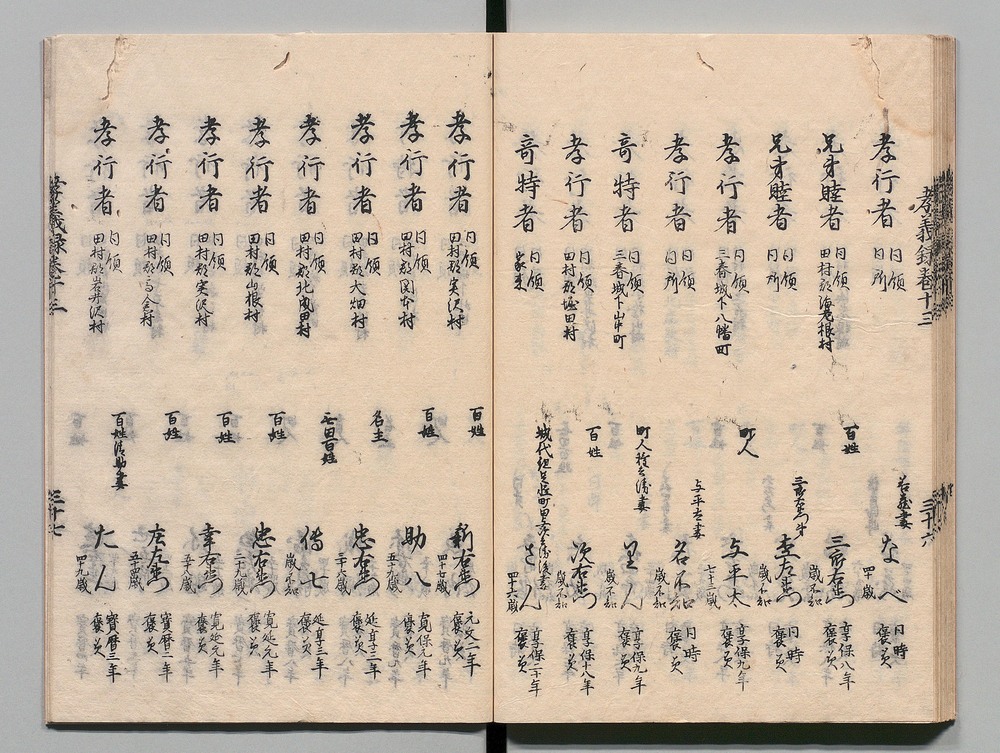 孝義録巻十三
三十六
孝行者 同領同所 名蔵妻 なべ 四十歳 同時褒美
兄弟睦者 同領田村郡海老根村 百姓 三郎右衛門 歳不知 享保八年褒美
兄弟睦者 同領同所 三郎右衛門弟 杢左衛門 歳不知 同時褒美
孝行者 同領三春城下八幡町 町人 与平太 七十三歳 享保九年褒美
孝行者 同領同所 与平太妻 名不知 歳不知 同時褒美
奇特者 同領三春城下山中町 里ん 歳不知 享保九年褒美
孝行者 同領田村郡堀田村 百姓 次右衛門 歳不知 享保十八年褒美
奇特者 同領家来 さん 四十六歳 享保二十年褒美
孝行者 同領田村郡実沢村 百姓 新右衛門 四十七歳 元文二年褒美
孝行者 同領田村郡関本村 百姓 助八 五十九歳 寛保元年褒美
孝行者 同領田村郡大畑村 名主 忠右衛門 三十八歳 延享三年褒美
孝行者 同領田村郡北成田村 百姓 傳七 歳不知 延享三年褒美
孝行者 同領田村郡山根村 百姓 忠右衛門 三十六歳 寛延元年褒美
孝行者 同領田村郡実沢村 百姓 幸右衛門 五十八歳 寛延元年褒美
孝行者 同領田村郡与合村 百姓 庄左衛門 五十四歳 寳暦二年褒美
孝行者 同領田村郡岩井沢村 百姓清助妻 たん 四十九歳 寳暦三年褒美
孝義録巻十三
三十七